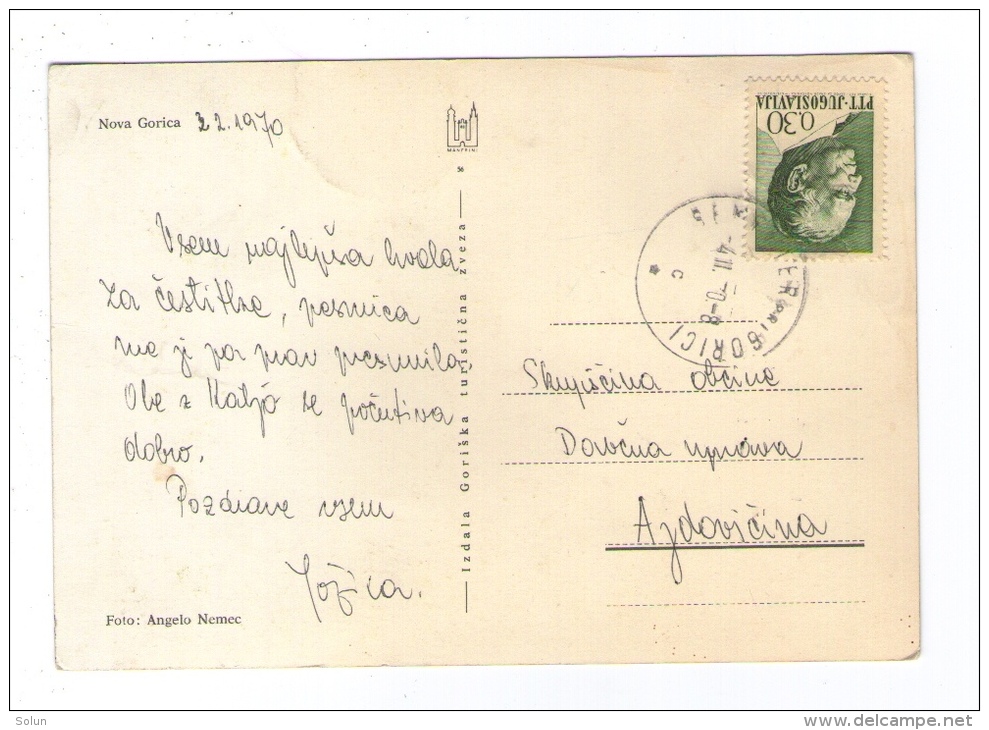 Nova Gorica 2.2.1970
Vsem najlepša hvala
za čestitke, pesmica
me ji par prav presunila
Obe z Katjo se počutiva
dobro.
Pozdrave vsem
Jožica.
Foto: Angelo Nemec
MANZPINI
56
Izdala Goriška turistična zveza
0.30
PTT-JUGOSLAVIJA
-4.II.70-8
PRI GORICI
C
Skupščina občine
Davčna uprava
Ajdovščina
Solun
http://www.delcampe.net